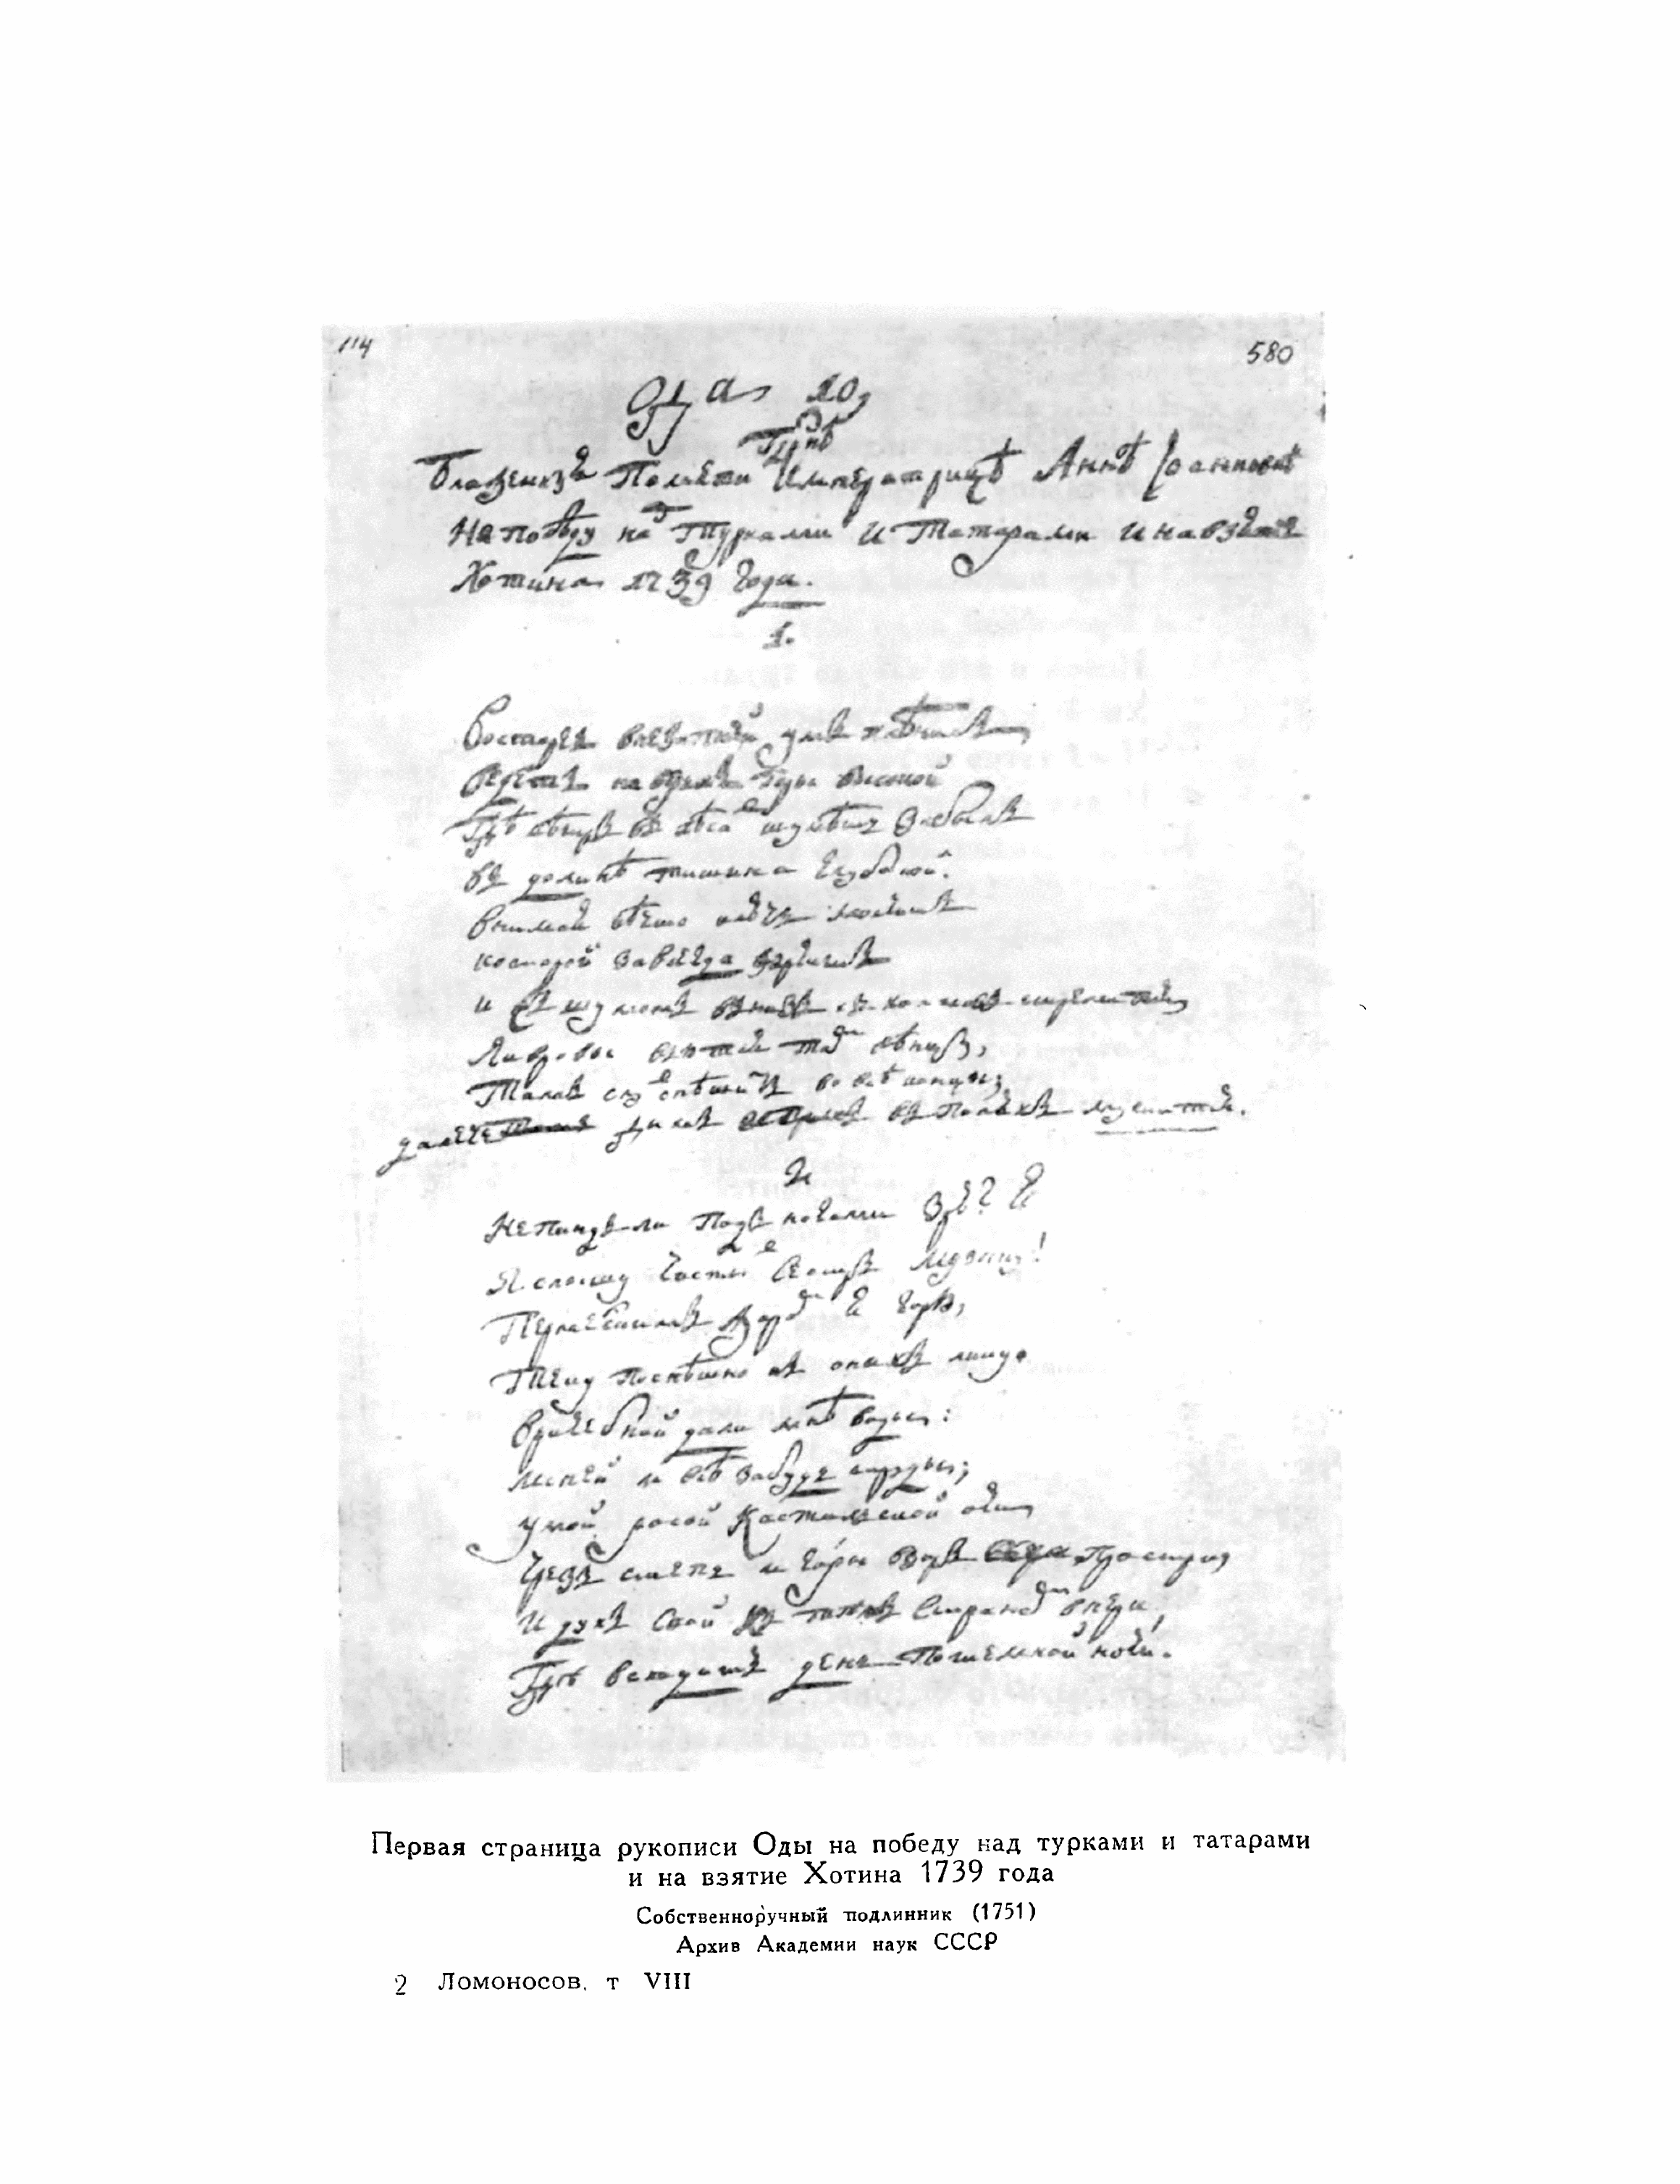 114
580
Ода 10,
Блаженныя Памяти Гдрнѣ Императрицѣ Аннѣ Іоанновнѣ
На побѣду над Турками и Татарами и на взятіе
Хотина 1739 года.
1.
Восторгъ внезапный умъ плѣнилъ,
Ведетъ на верьхъ горы высокой
Гдѣ вѣтръ въ лѣсахъ шумѣть забылъ
Въ долинѣ тишина глубокой.
Внимая нѣчто ключь молчитъ
которой завсегда журчитъ
и съ шумомъ внизъ съ холмовъ стремится,
Лавровы вьются там вѣнцы,
Тамъ слухъ спѣшитъ во всѣ концы;
далече дымъ въ поляхъ курится.
2
Не Пиндъ ли подъ ногами зрю? Я
Я слышу чистыхъ сестръ музыку!
Пермесскимъ жаромъ я горю,
Теку поспѣшно къ оныхъ лику.
Врачебной дали мнѣ воды:
испей и всѣ забудь труды;
умой росой Кастальской очи,
Чрезъ степь и горы взоръ простри,
И духъ свой къ тѣмъ странамъ впери,
Гдѣ всходитъ день по темной ночи.
Первая страница рукописи Оды на победу над турками и татарами
и на взятие Хотина 1739 года
Собственноручный подлинник (1751)
Архив Академии наук СССР
2 Ломоносов, т VIII